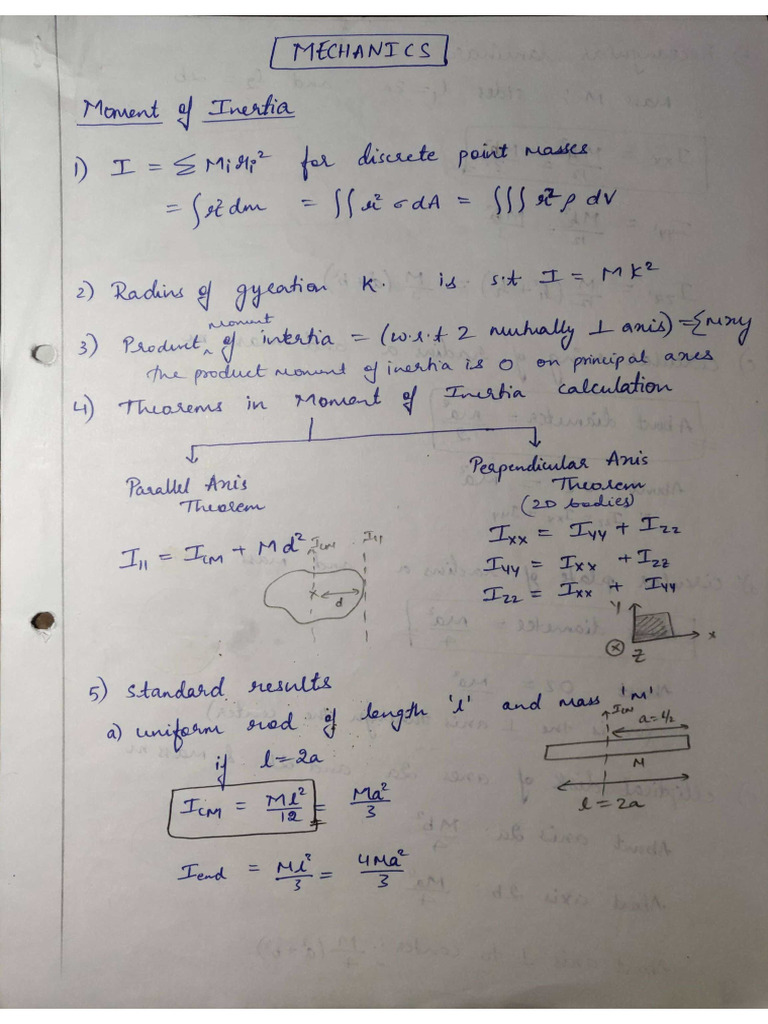 MECHANICS
Moment of Inertia
1) I = Σ Mᵢrᵢ² for discrete point masses
= ∫r²dm = ∫∫r² σ dA = ∫∫∫ r² ρ dV
2) Radius of gyration K. is s.t I = MK²
3) Product moment of inertia = (w.r.t 2 mutually ⊥ axis) = Σmxy
The product moment of inertia is 0 on principal axes
4) Theorems in Moment of Inertia calculation
Parallel Axis
Theorem
I₁₁ = I_CM + Md²
I_CM
I₁₁
d
Perpendicular Axis
Theorem
(2D bodies)
I_XX = I_YY + I_ZZ
I_YY = I_XX + I_ZZ
I_ZZ = I_XX + I_YY
Y
X
Z
5) Standard results
a) uniform rod of length 'l' and mass 'M'
if l = 2a
I_CM = Ml²/12 = Ma²/3
I_end = Ml²/3 = 4Ma²/3
I_CM
a = l/2
M
l = 2a